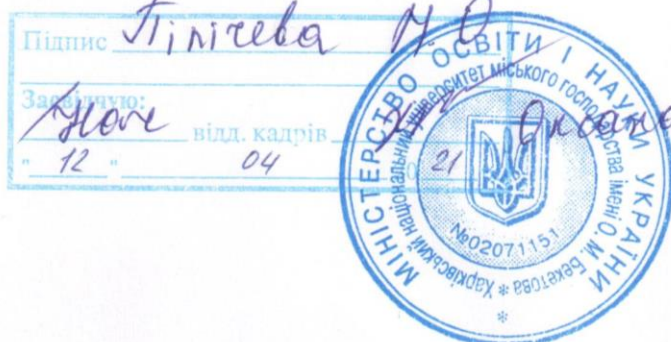 Підпис Пілічева М.О.
Засвідчую:
Нач відд. кадрів Оксана
" 12 " 04 20 21
МІНІСТЕРСТВО ОСВІТИ І НАУКИ УКРАЇНИ
Харківський національний університет міського господарства імені О.М. Бекетова
№02071151